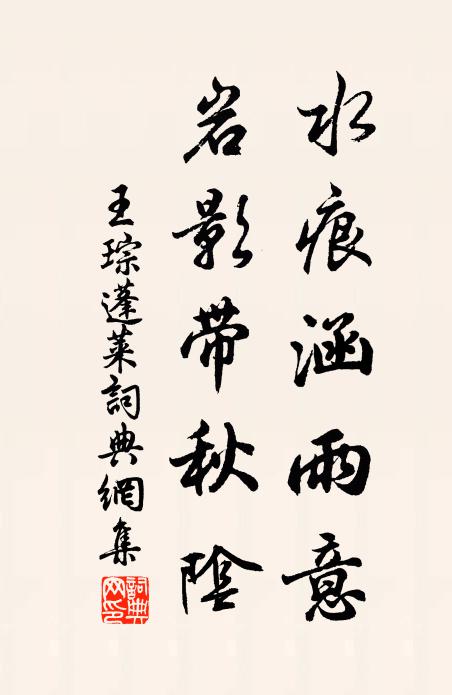 水痕涵雨意
岩影帶秋陰
王琮蓬萊詞典網集
詞典网印